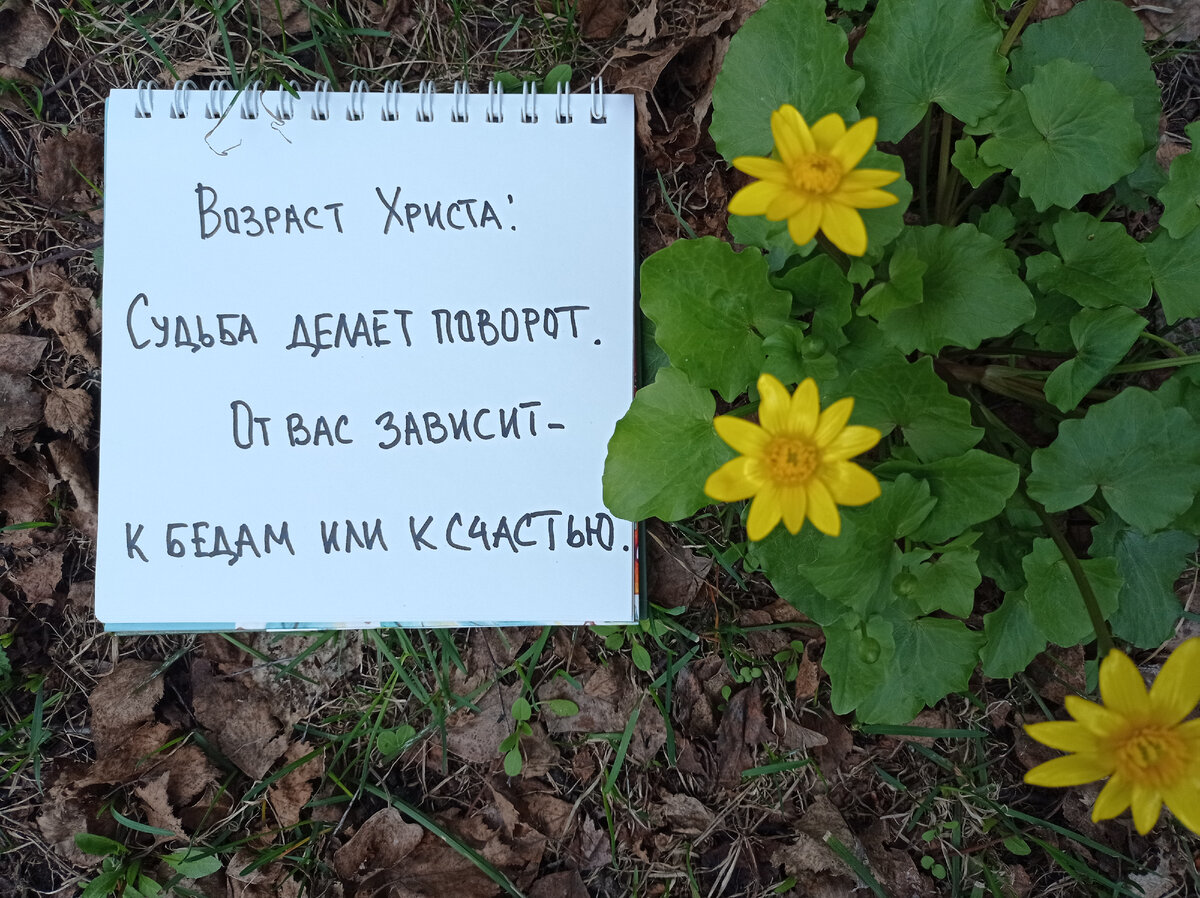 Возраст Христа:
Судьба делает поворот.
От вас зависит-
к бедам или к счастью.